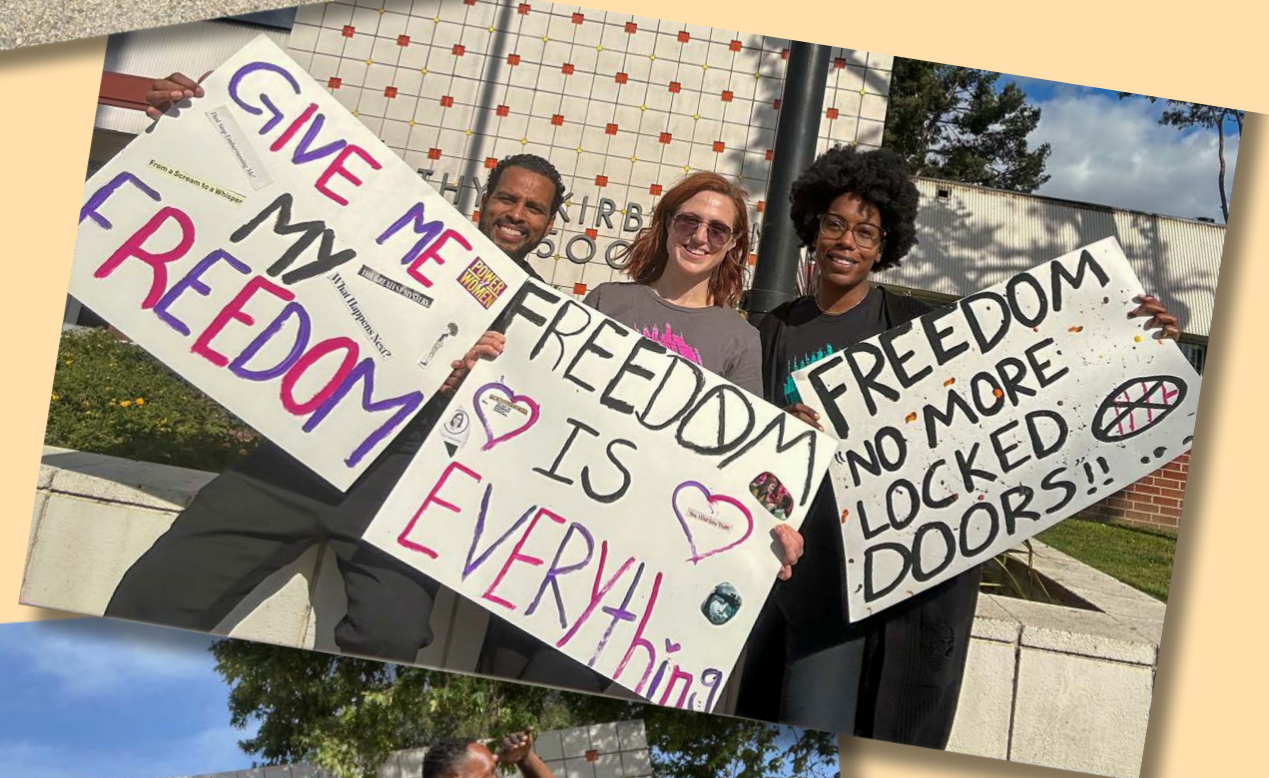 GIVE ME
MY
FREEDOM
From a Scream to a Whisper
POWER
WOMEN
What Happens Next?
FREEDOM
IS
EVERYthing
FREEDOM
"NO MORE
LOCKED
DOORS!!
KIRB